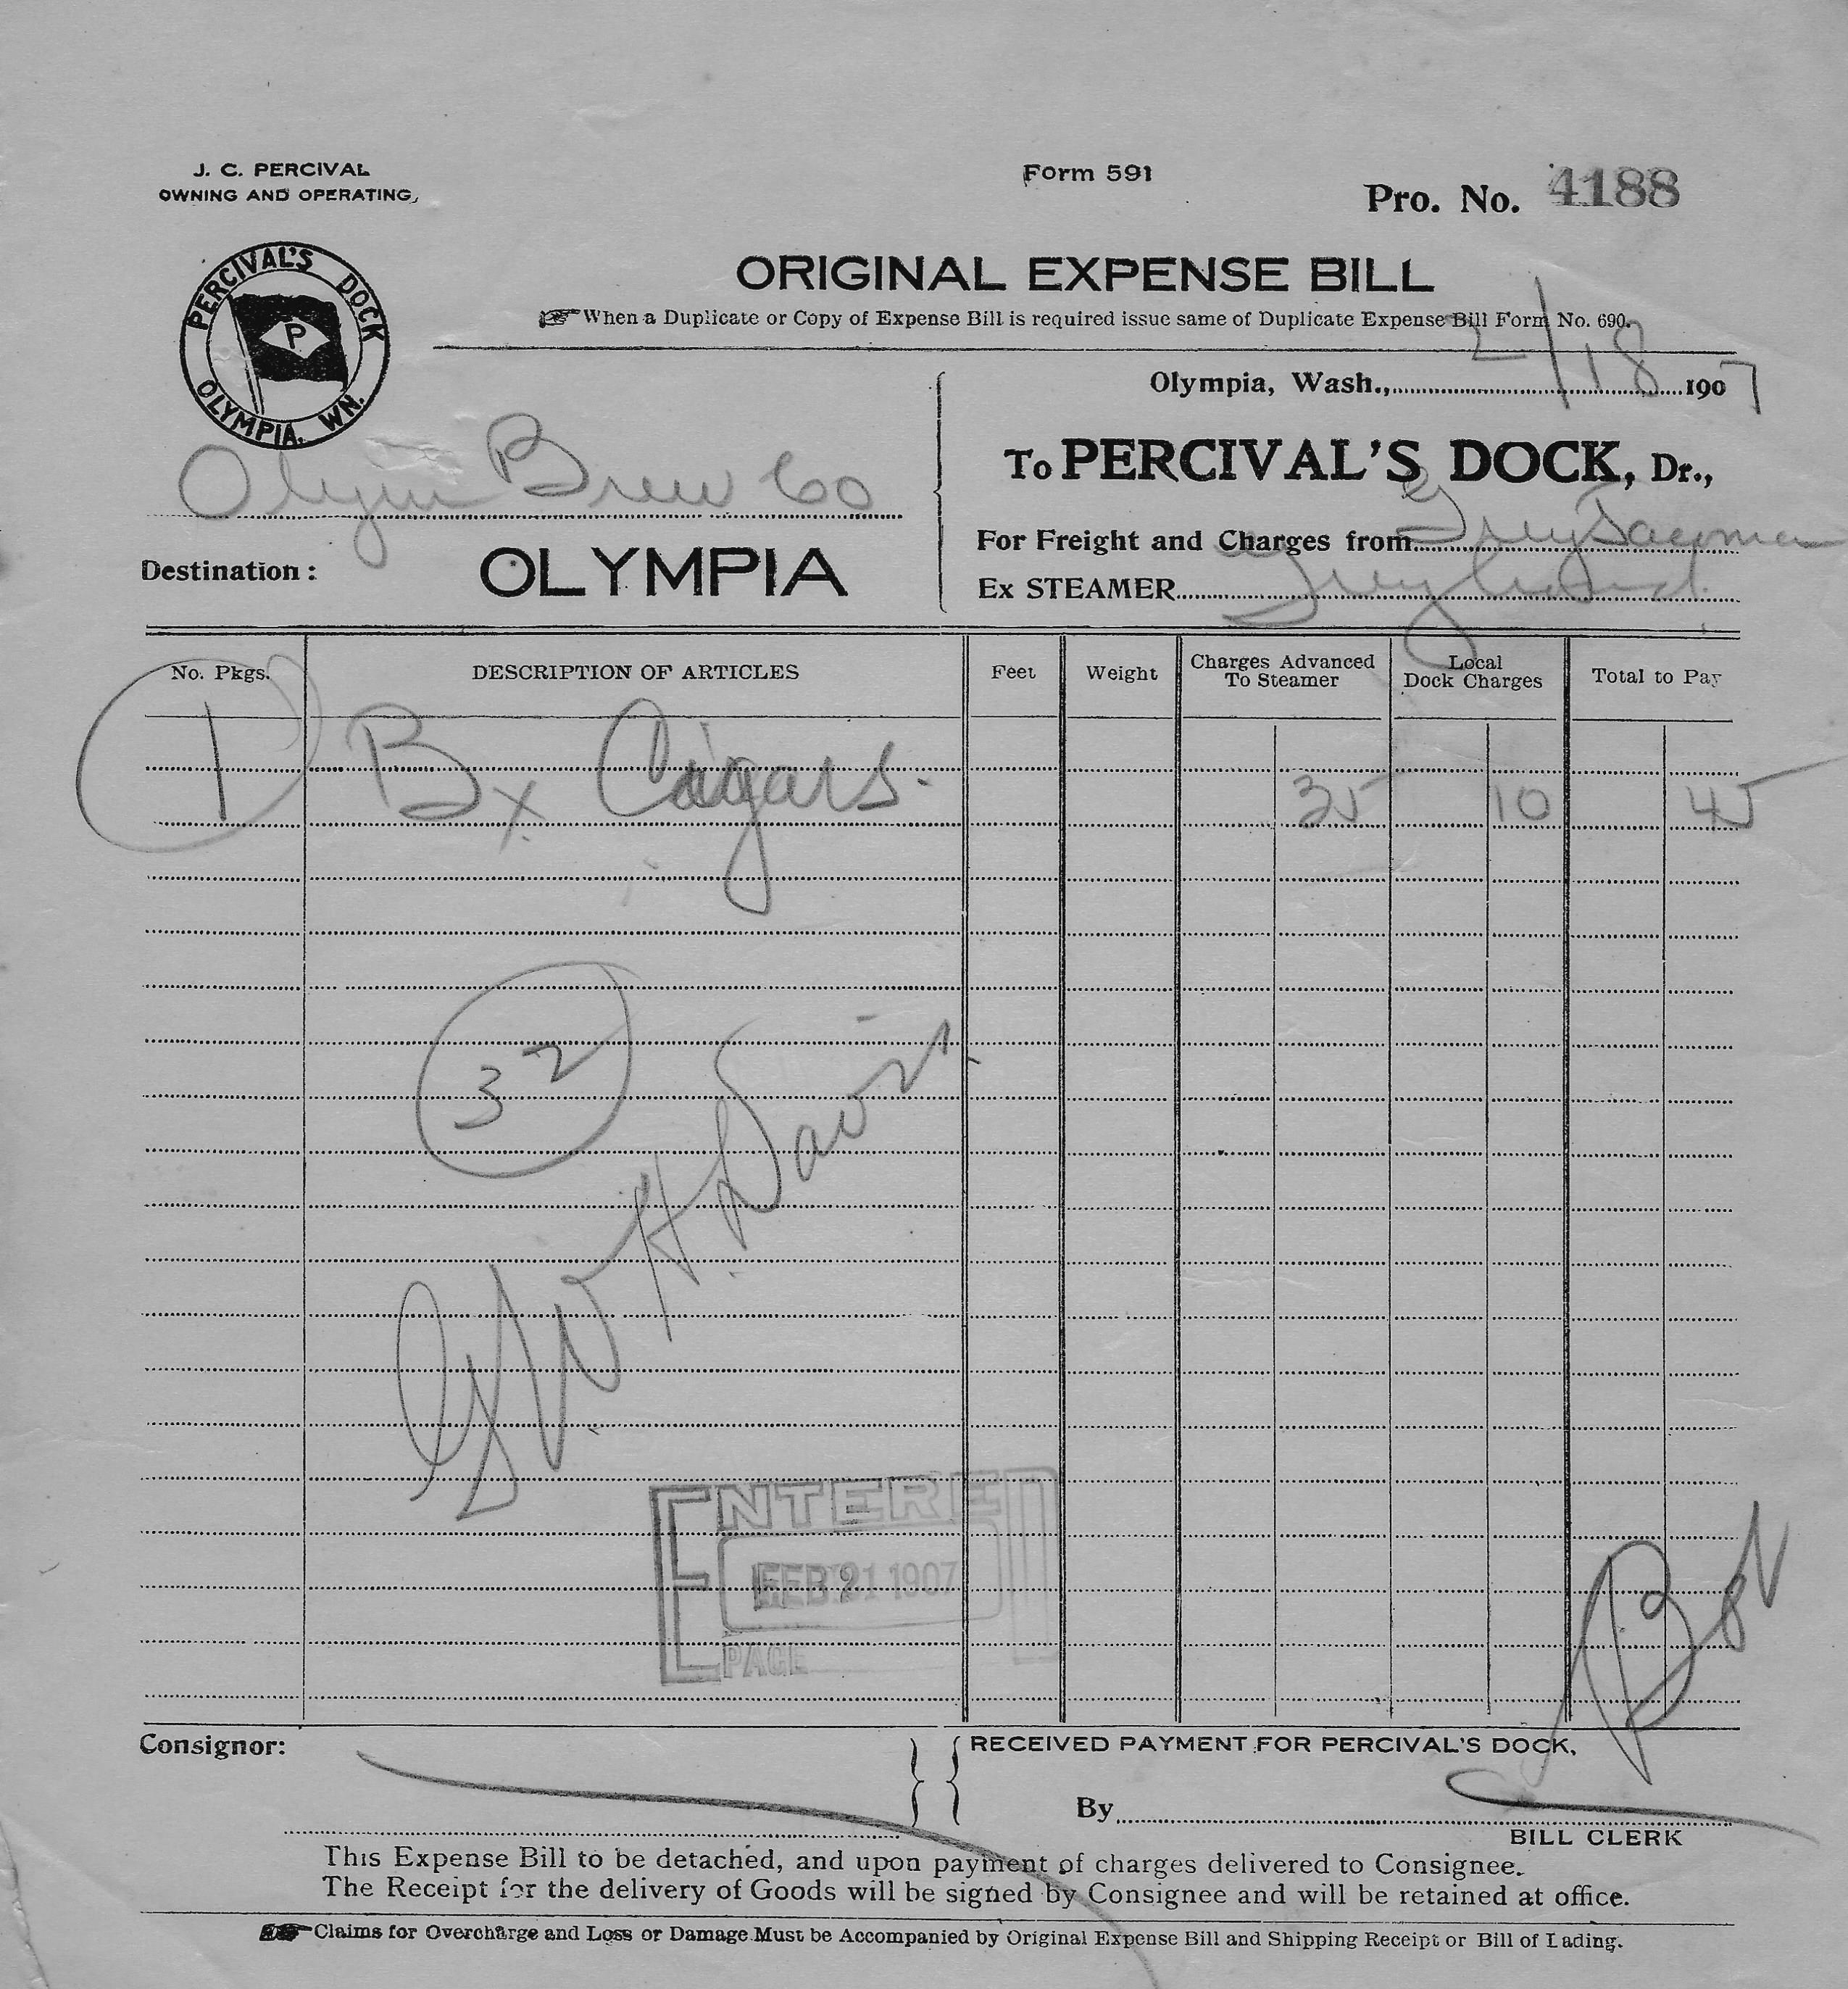 J. C. PERCIVAL
OWNING AND OPERATING,
Form 591
Pro. No. 4188
PERCIVAL'S DOCK
P
OLYMPIA, WN.
ORIGINAL EXPENSE BILL
When a Duplicate or Copy of Expense Bill is required issue same of Duplicate Expense Bill Form No. 690.
Olympia, Wash., 2/18 1907
Brew Co
To PERCIVAL'S DOCK, Dr.,
For Freight and Charges from Tacoma
Destination: OLYMPIA
Ex STEAMER Greyhound.
No. Pkgs. DESCRIPTION OF ARTICLES Feet Weight Charges Advanced To Steamer Local Dock Charges Total to Pay
1 Bx Cigars. 35 10 45
32
Davis
ENTERED
FEB 21 1907
PAGE
Consignor:
RECEIVED PAYMENT FOR PERCIVAL'S DOCK,
By
BILL CLERK
This Expense Bill to be detached, and upon payment of charges delivered to Consignee.
The Receipt for the delivery of Goods will be signed by Consignee and will be retained at office.
Claims for Overcharge and Loss or Damage Must be Accompanied by Original Expense Bill and Shipping Receipt or Bill of Lading.